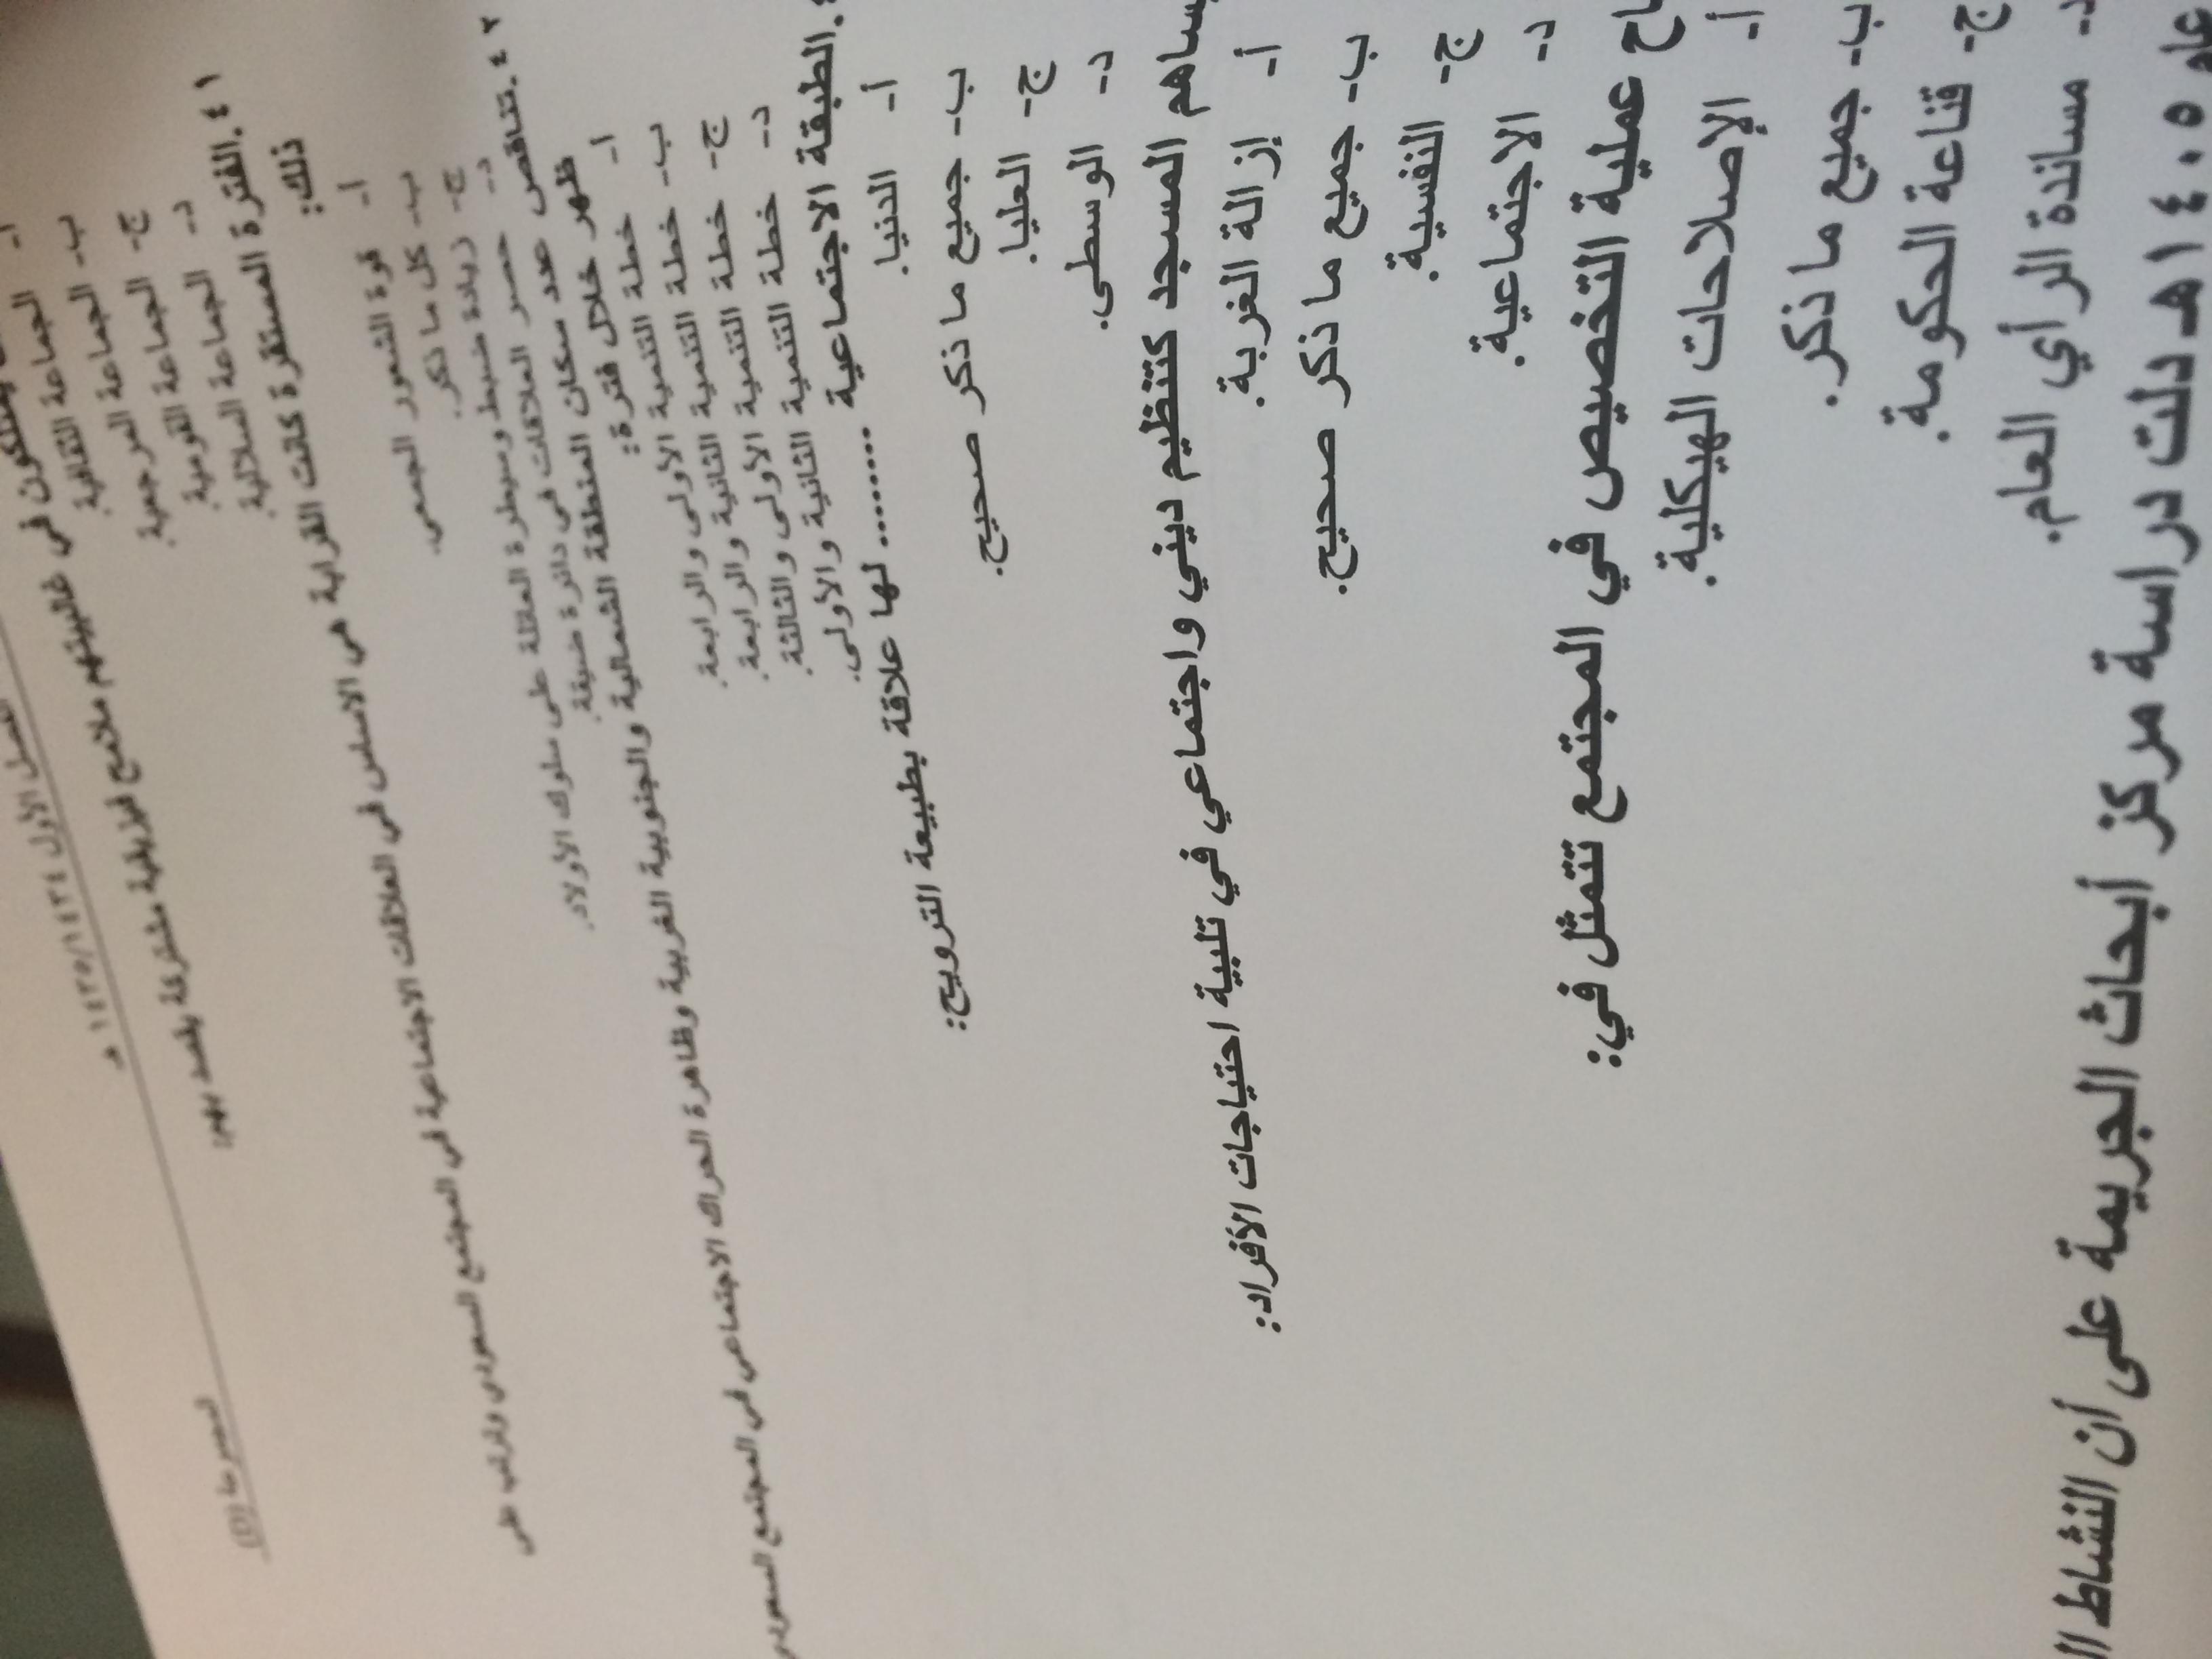 الفصل الأول ١٤٣٥/١٤٣٤ هـ
المجموعة (D)
في غالبيتهم ملامح فيزيقية مشتركة يقصد بهم:
أ- الجماعة
ب- الجماعة الثقافية
ج- الجماعة المرجعية
د- الجماعة القومية
الجماعة السلالية
٤١. الفترة المستقرة كانت القرابة هي الأساس في العلاقات الاجتماعية في المجتمع السعودي وترتب على
ذلك:
أ- قوة الشعور الجمعي.
ب- كل ما ذكر.
ج- زيادة ضبط وسيطرة العائلة على سلوك الأولاد.
د- حصر العلاقات في دائرة ضيقة.
٤٢. تناقص عدد سكان المنطقة الشمالية والجنوبية الغربية وظاهرة الحراك الاجتماعي في المجتمع السعودي
ظهر خلال فترة:
أ- خطة التنمية الأولى والرابعة.
ب- خطة التنمية الثانية والرابعة.
ج- خطة التنمية الأولى والثالثة.
د- خطة التنمية الثانية والأولى.
الطبقة الاجتماعية ........ لها علاقة بطبيعة الترويح:
أ- الدنيا.
ب- جميع ما ذكر صحيح.
ج- العليا.
د- الوسطى.
يساهم المسجد كتنظيم ديني واجتماعي في تلبية احتياجات الأفراد:
أ- إزالة الغربة.
ب- جميع ما ذكر صحيح.
ج- النفسية.
د- الاجتماعية.
عملية التخصيص في المجتمع تتمثل في:
أ- الإصلاحات الهيكلية.
ب- جميع ما ذكر.
ج- قناعة الحكومة.
د- مساندة الرأي العام.
عام ١٤٠٥هـ دلت دراسة مركز أبحاث الجريمة على أن النشاط